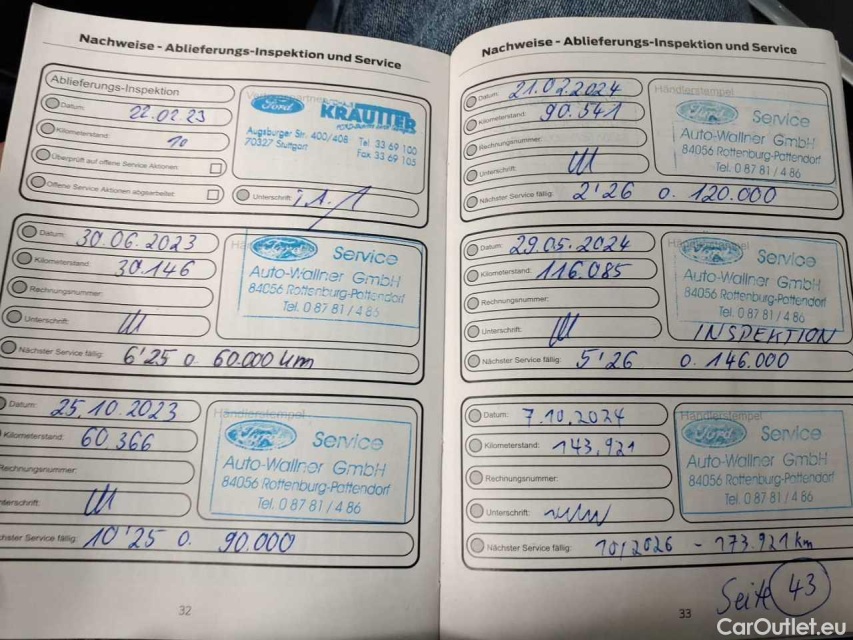 Nachweise - Ablieferungs-Inspektion und Service
Ablieferungs-Inspektion
Datum: 22.02.23
Kilometerstand: 10
Überprüft auf offene Service Aktionen
Offene Service Aktionen abgearbeitet
Ford KRAUTTER
Augsburger Str. 400/408 Tel 33 69 100
70327 Stuttgart Fax 33 69 105
Unterschrift:
Datum: 30.06.2023
Kilometerstand: 30.146
Rechnungsnummer:
Unterschrift:
Nächster Service fällig: 6'25 o. 60.000 km
Ford Service
Auto-Wallner GmbH
84056 Rottenburg-Pattendorf
Tel. 0 87 81 / 4 86
Datum: 25.10.2023
Kilometerstand: 60.366
Rechnungsnummer:
Unterschrift:
Nächster Service fällig: 10'25 o. 90.000
Händlerstempel
Ford Service
Auto-Wallner GmbH
84056 Rottenburg-Pattendorf
Tel. 0 87 81 / 4 86
32
Nachweise - Ablieferungs-Inspektion und Service
Datum: 21.02.2024
Kilometerstand: 90.541
Rechnungsnummer:
Unterschrift:
Nächster Service fällig: 2'26 o. 120.000
Händlerstempel
Ford Service
Auto-Wallner GmbH
84056 Rottenburg-Pattendorf
Tel. 0 87 81 / 4 86
Datum: 29.05.2024
Kilometerstand: 116.085
Rechnungsnummer:
Unterschrift:
Nächster Service fällig: 5'26 o. 146.000
Händlerstempel
Ford Service
Auto-Wallner GmbH
84056 Rottenburg-Pattendorf
Tel. 0 87 81 / 4 86
INSPEKTION
Datum: 7.10.2024
Kilometerstand: 143.921
Rechnungsnummer:
Unterschrift:
Nächster Service fällig: 10/2026 - 173.921 km
Händlerstempel
Ford Service
Auto-Wallner GmbH
84056 Rottenburg-Pattendorf
Tel. 0 87 81 / 4 86
33
Seite 43
CarOutlet.eu